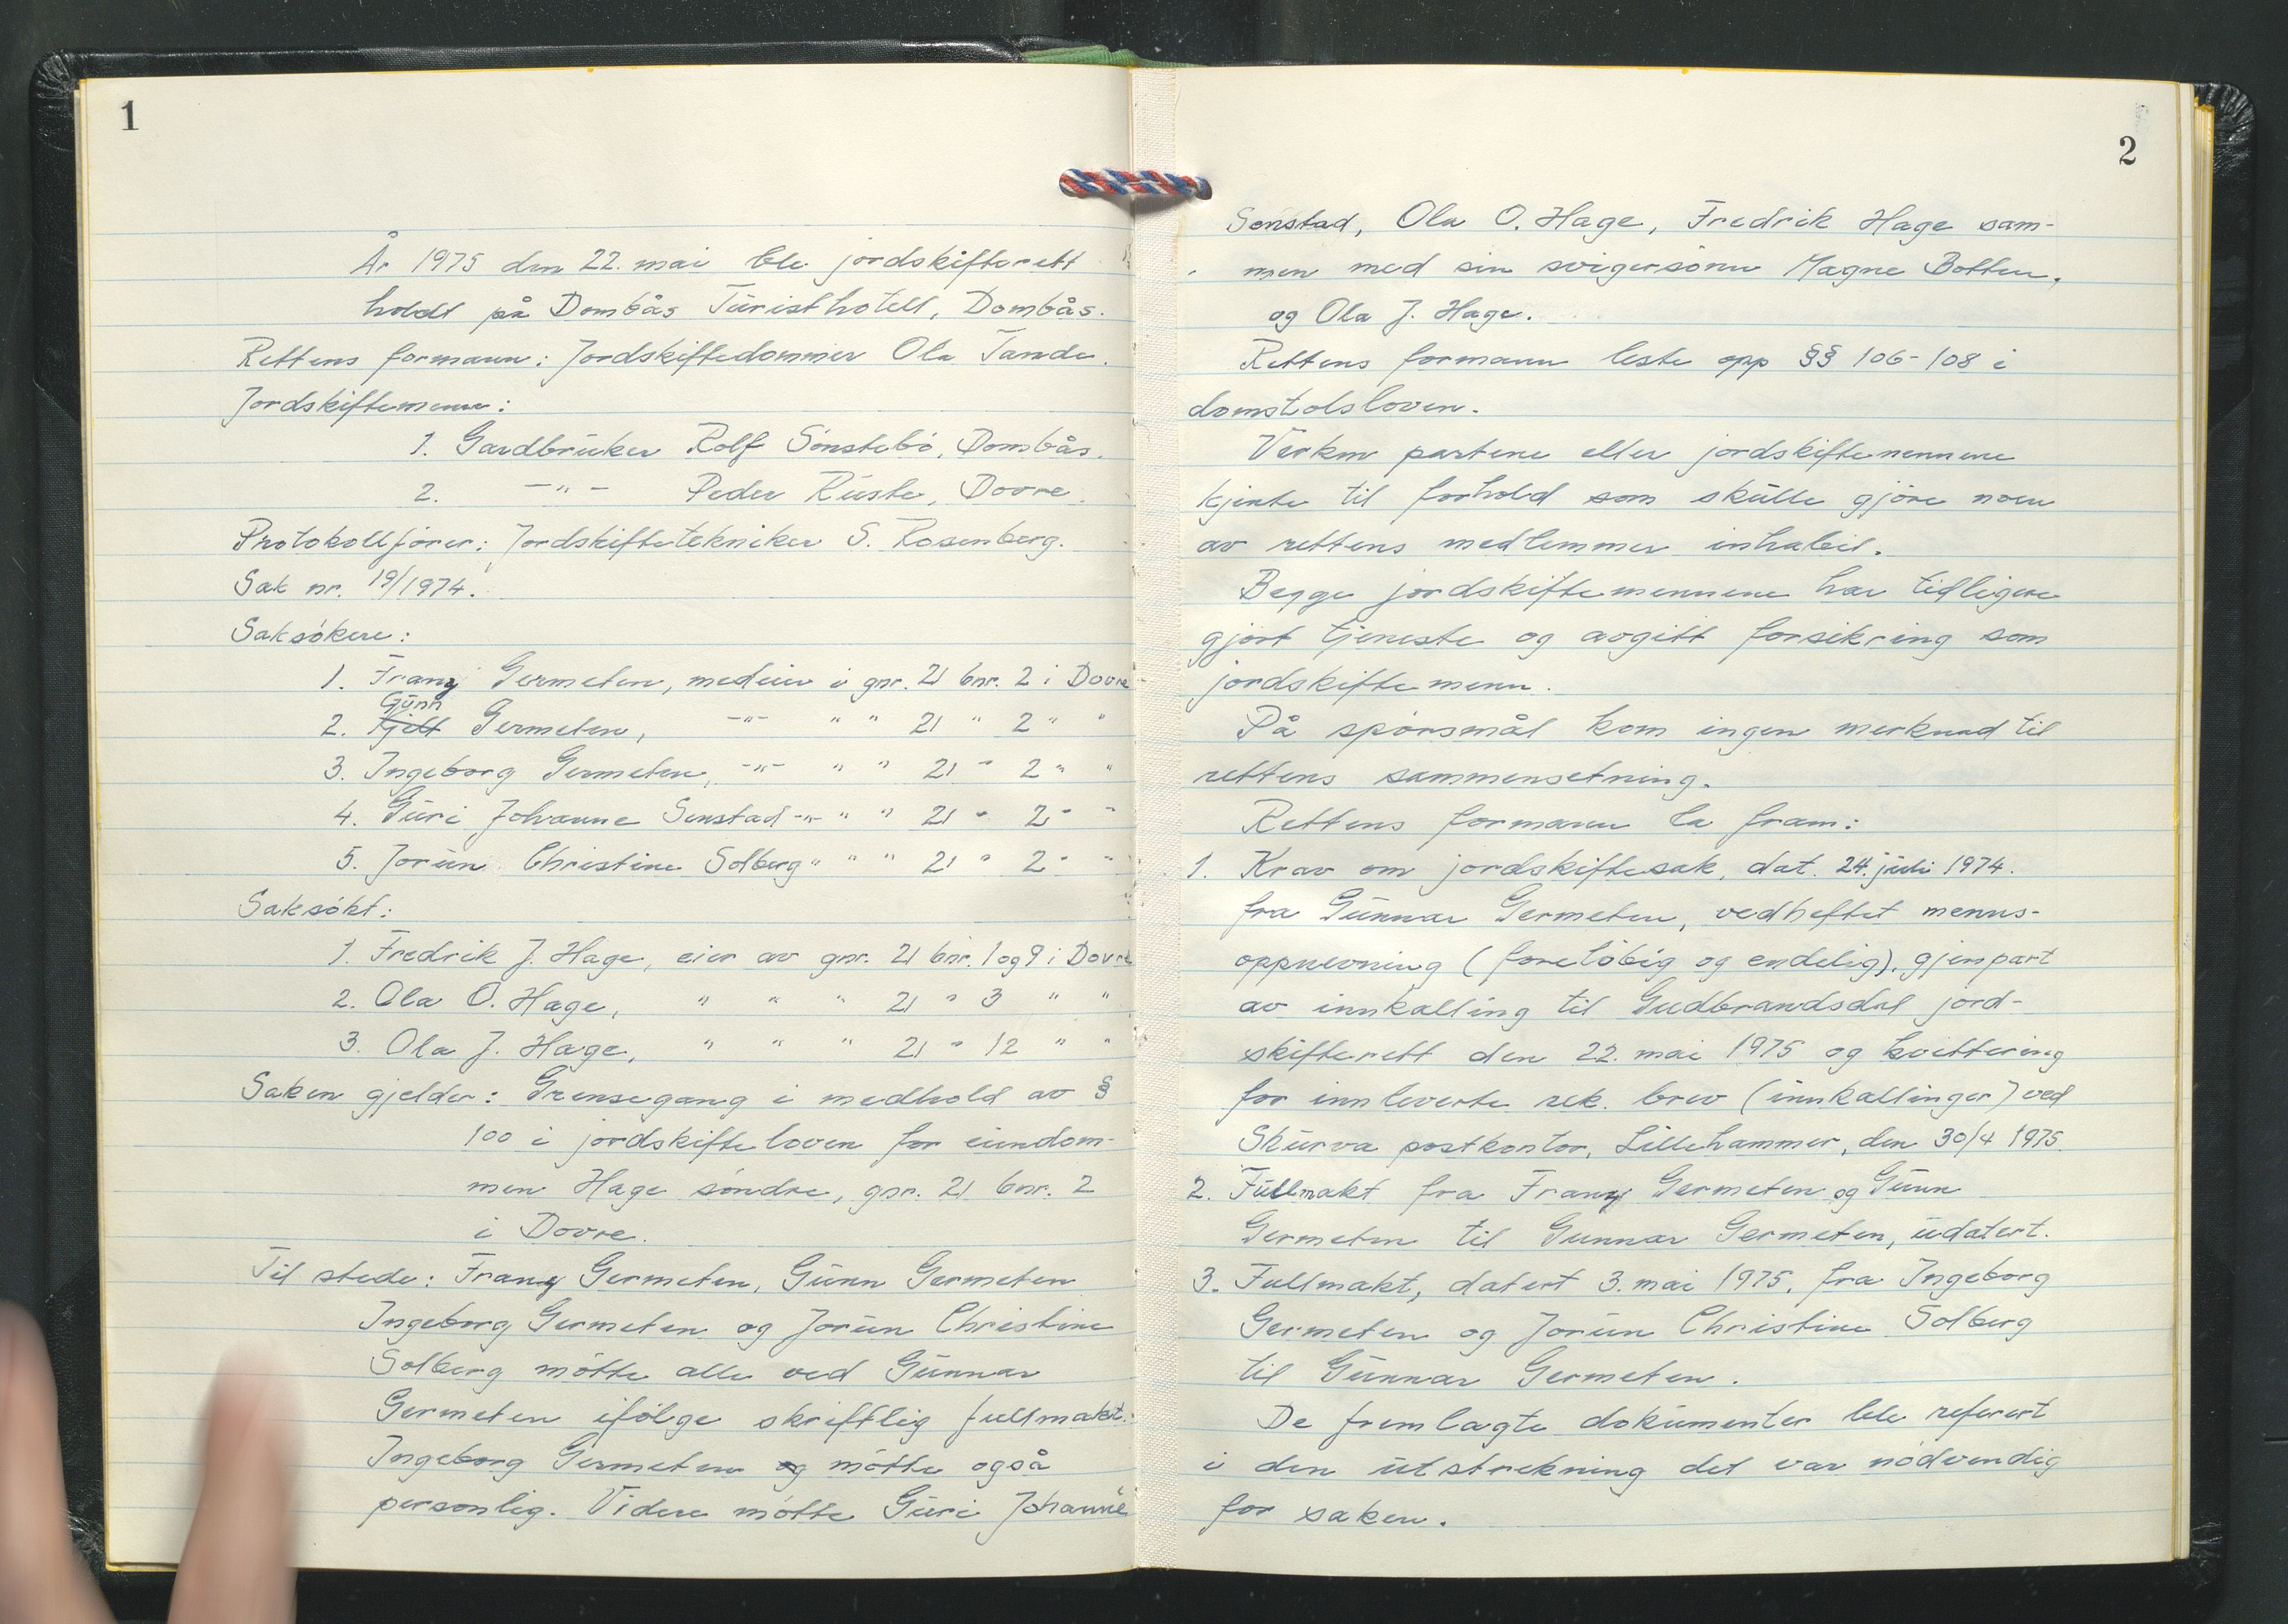 1
År 1975 den 22. mai ble jordskifterett
holdt på Dombås Turisthotell, Dombås.
Rettens formann: Jordskiftedommer Ola Tande.
Jordskiftemenn:
1. Gardbruker Rolf Sönstebö, Dombås.
2. -"- Peder Ruste, Dovre.
Protokollförer: Jordskiftetekniker S. Rosenberg.
Sak nr. 19/1974.
Saksökere:
1. Franz Germeten, medeier i gnr. 21 bnr. 2 i Dovre
Gunn
2. Kjell Germeten, -"- " " 21 " 2 " "
3. Ingeborg Germeten, -"- " " 21 " 2 " "
4. Guri Johanne Senstad -"- " " 21 " 2 " "
5. Jorun Christine Solberg " " " 21 " 2 " "
Saksökt:
1. Fredrik J. Hage, eier av gnr. 21 bnr. 1 og 9 i Dovre
2. Ola O. Hage, " " " 21 " 3 " "
3. Ola J. Hage, " " " 21 " 12 " "
Saken gjelder: Grensegang i medhold av §
100 i jordskifteloven for eiendom-
men Hage söndre, gnr. 21 bnr. 2
i Dovre.
Til stede: Franz Germeten, Gunn Germeten
Ingeborg Germeten og Jorun Christine
Solberg mötte alle ved Gunnar
Germeten ifölge skriftlig fullmakt.
Ingeborg Germeten og mötte også
personlig. Videre mötte Guri Johanne
2
Senstad, Ola O. Hage, Fredrik Hage sam-
men med sin svigersönn Magne Botten,
og Ola J. Hage.
Rettens formann leste opp §§ 106-108 i
domstolsloven.
Verken partene eller jordskiftemennene
kjente til forhold som skulle gjöre noen
av rettens medlemmer inhabil.
Begge jordskiftemennene har tidligere
gjort tjeneste og avgitt forsikring som
jordskiftemenn.
På spörsmål kom ingen merknad til
rettens sammensetning.
Rettens formann la fram:
1. Krav om jordskiftesak, dat. 24. juli 1974.
fra Gunnar Germeten, vedheftet menns-
oppnevning (forelöbig og endelig), gjenpart
av innkalling til Gudbrandsdal jord-
skifterett den 22. mai 1975 og kvittering
for innleverte rek. brev (innkallinger) ved
Skurva postkontor, Lillehammer, den 30/4 1975.
2. Fullmakt fra Franz Germeten og Gunn
Germeten til Gunnar Germeten, udatert.
3. Fullmakt, datert 3. mai 1975, fra Ingeborg
Germeten og Jorun Christine Solberg
til Gunnar Germeten.
De fremlagte dokumenter ble referert
i den utstrekning det var nödvendig
for saken.